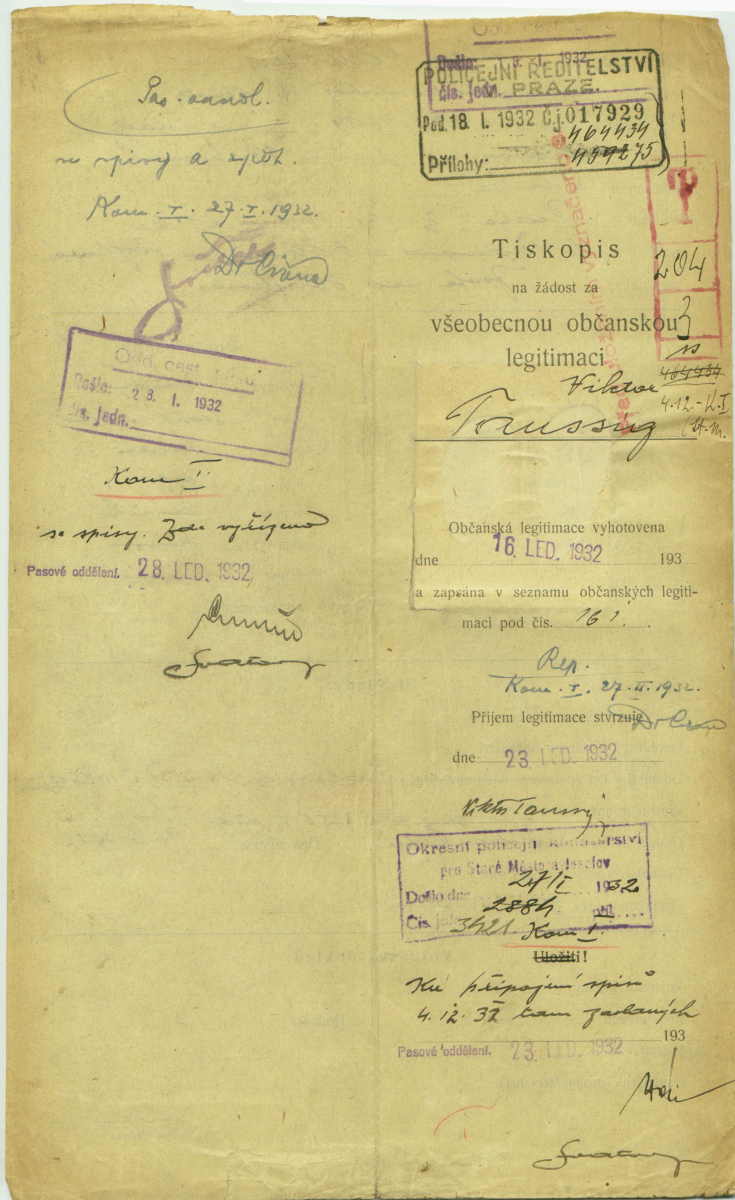 Pas. odděl.
se spisy a zpět.
Kom. I. 27.I.1932.
Došlo: 28. I. 1932
čís. jedn.
Kom I.
se spisy. Zde vyřízeno
Pasové oddělení. 28. LED. 1932
1932
Došlo:
čís. jedn.
POLICEJNÍ ŘEDITELSTVÍ
PRAZE.
Pod. 18. I. 1932 Čj. 017929
464434
Přílohy: 459275
T
204
3
Tiskopis
na žádost za
všeobecnou občanskou
legitimaci
464434
Viktor
4.12-
Taussig
Občanská legitimace vyhotovena
dne 16. LED. 1932 193
a zapsána v seznamu občanských legiti-
mací pod čís. 161.
Rep.
Kom. I. 27.II.1932.
Příjem legitimace stvrzuje
dne 23. LED. 1932
Viktor Taussig
Okresní policejní komisařství
pro Staré Město a Josefov
Došlo dne 27/I 1932
2884
Čís. 3421 příl.
Kom I.
Uložiti!
Ku připojení spisů
4.12.32 tam zaslaných
193
Pasové oddělení. 23. LED. 1932